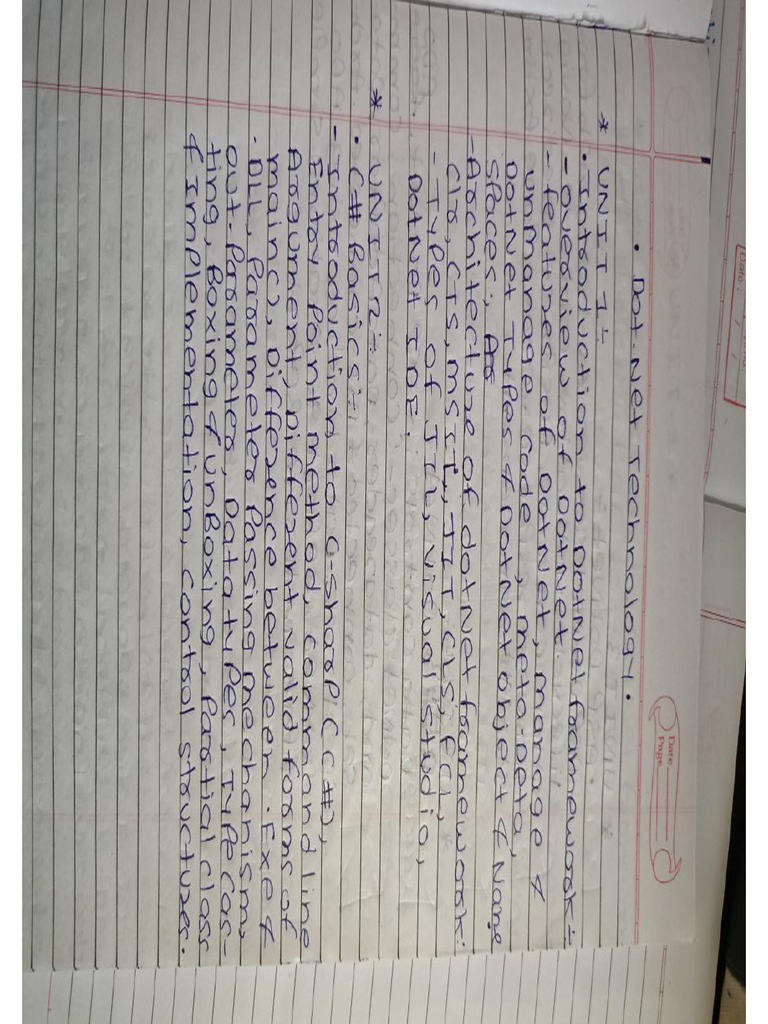 Date
Page
• Dot-Net Technology •
* UNIT 1 :-
• Introduction to DotNet foamework :-
- overview of DotNet.
- features of DotNet, manage &
unmanage code, meta-deta,
DotNet Types & DotNet object & Name
spaces,
- Architecture of dotNet foamework:
CLR, CTS, MSIL, JIT, CLS, FCL,
- Types of JIL, visual studio,
DotNet IDE.
* UNIT 2 :-
• C# Basics :-
- Introduction to C-sharp (C#),
Entry Point method, command line
Argument, Different valid forms of
main(), Difference between .Exe &
.DLL, Parameter Passing mechanism,
out-Parameter, Data types, Type cas-
ting, Boxing & unBoxing, Partial class
& Implementation, control structures.
Date: